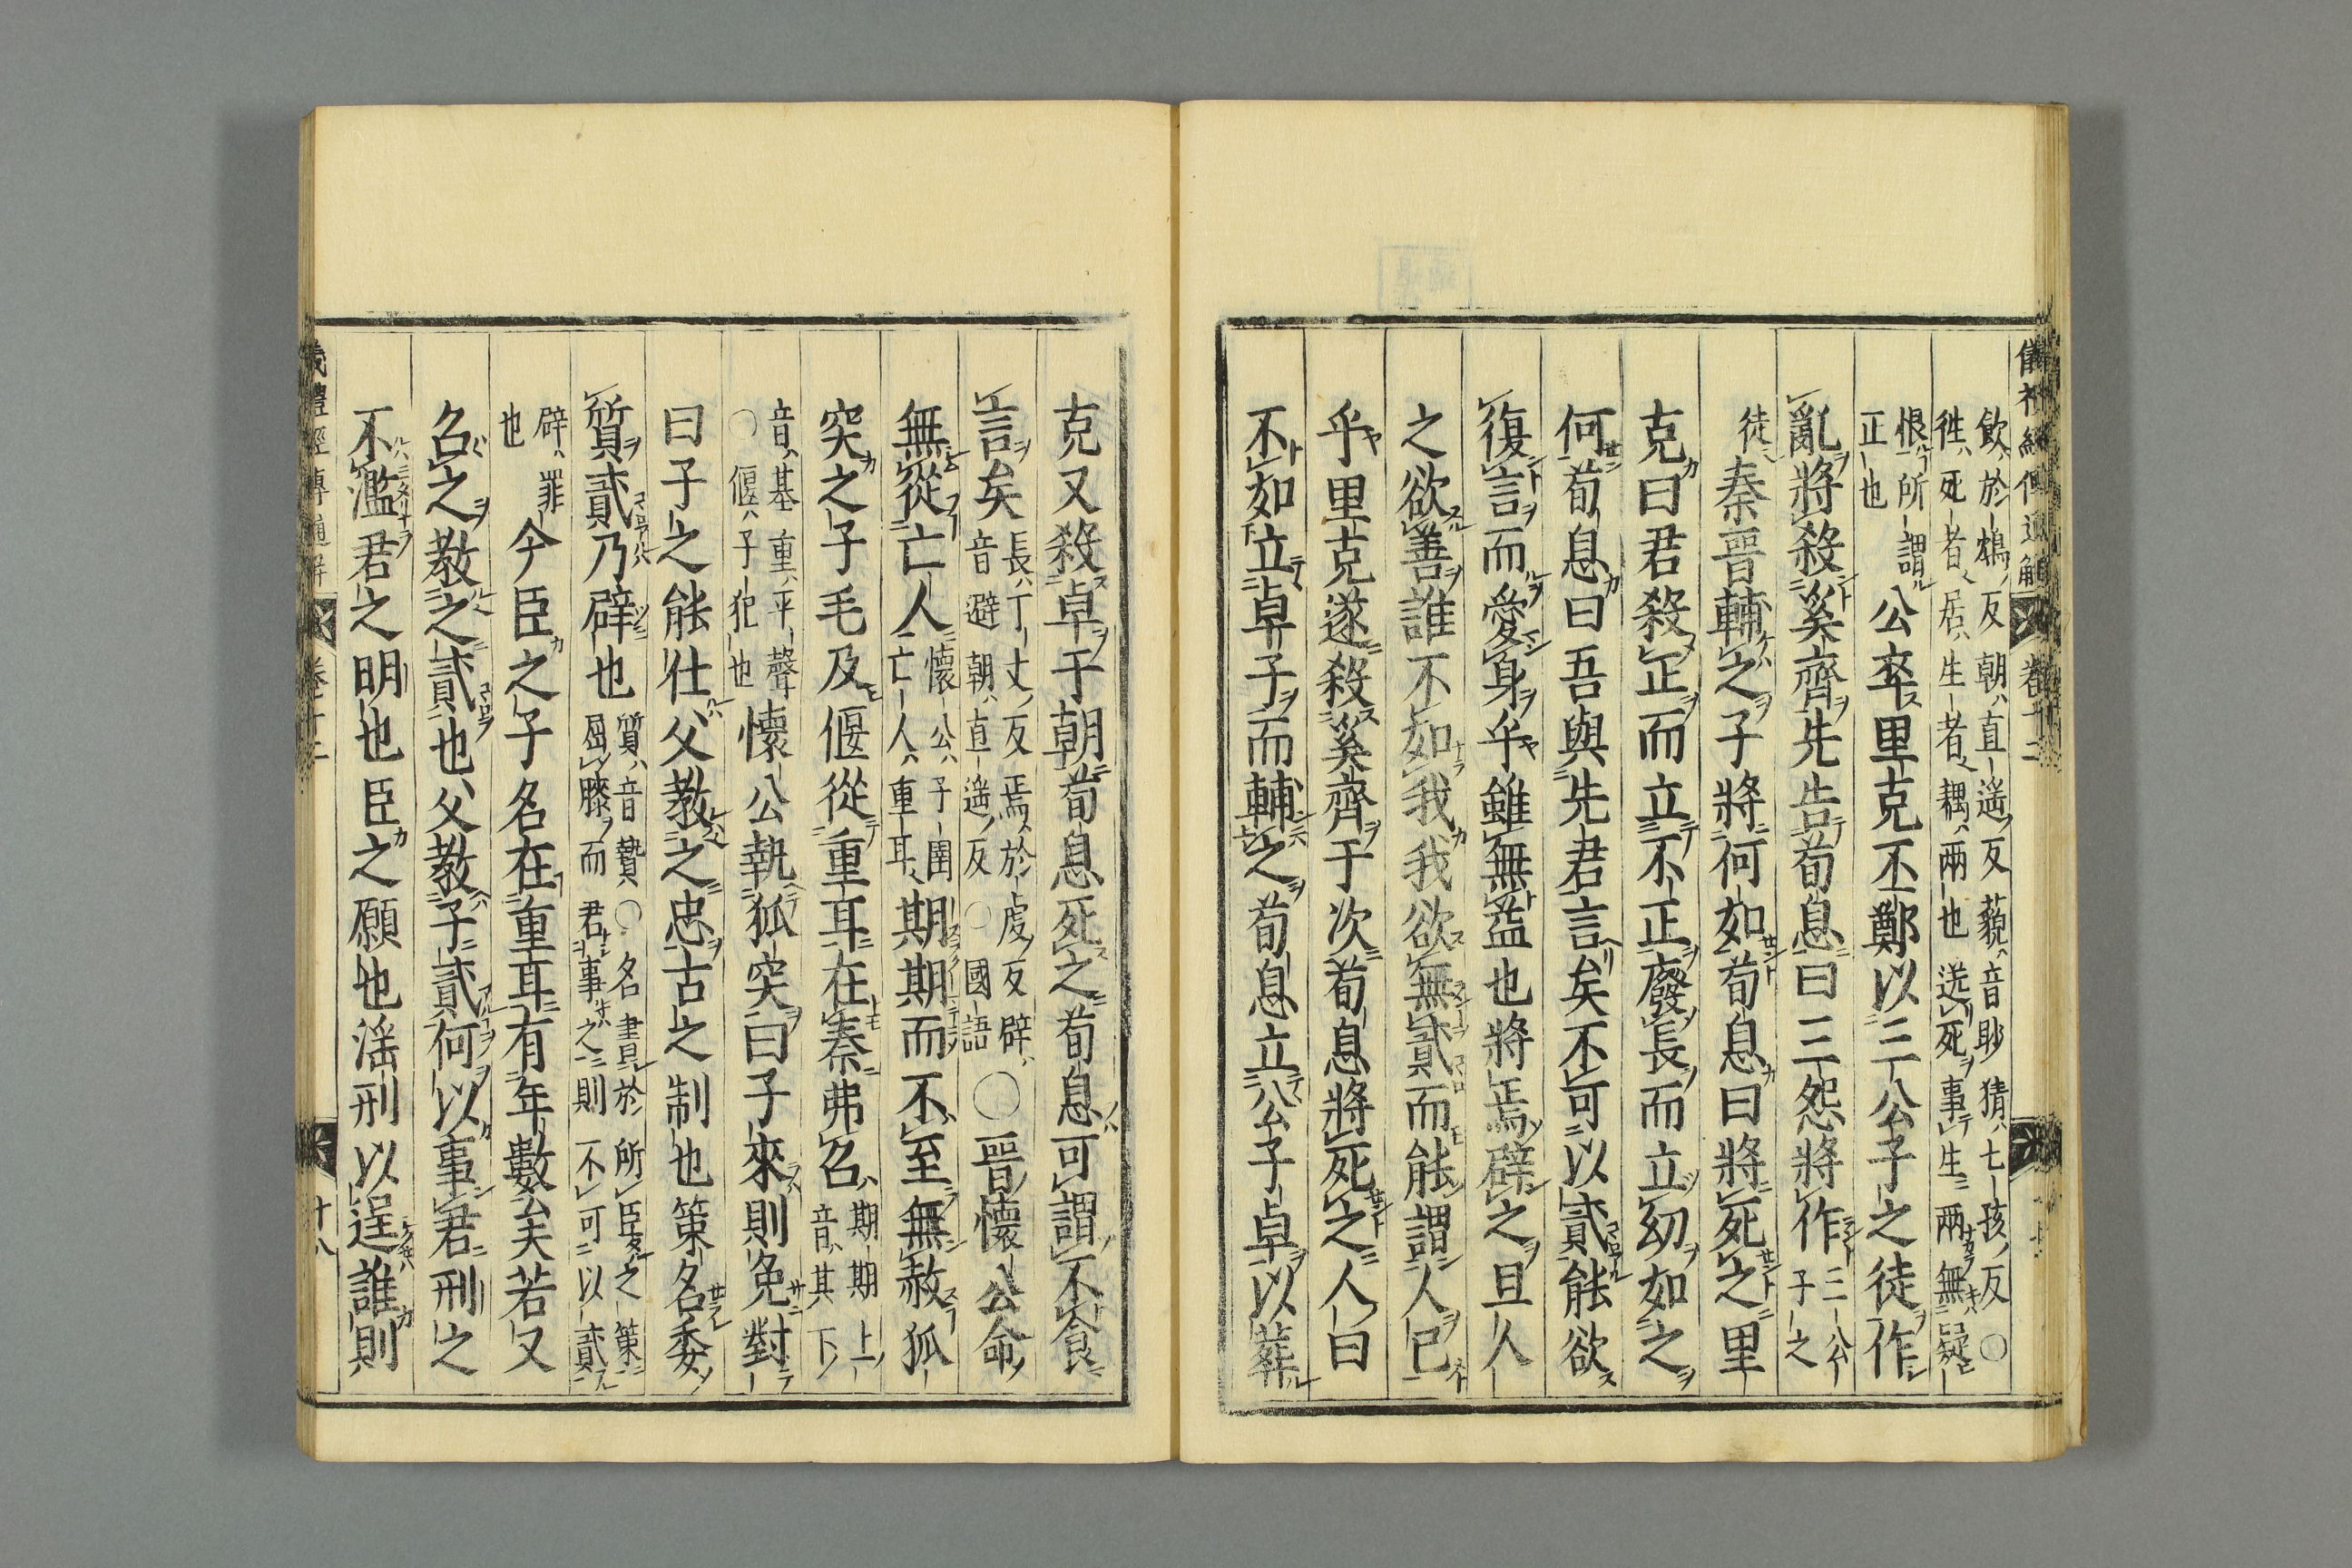 飲於鴆反朝直遥反藐音眇猜七孩反○
徃死者居生者耦兩也送死事生兩無疑
恨所謂
正也
公卒里克丕鄭以三公子之徒作
亂將殺奚齊先告荀息曰三怨將作
三公
子之
徒
秦晉輔之子將何如荀息曰將死之里
克曰君殺正而立不正廢長而立幼如之
何荀息曰吾與先君言矣不可以貳能欲
復言而愛身乎雖無益也將焉辟之且人
之欲善誰不如我我欲無貳而能謂人已
乎里克遂殺奚齊于次荀息將死之人曰
不如立卓子而輔之荀息立公子卓以葬
卷十二
克又殺卓于朝荀息死之荀息可謂不食
言矣
長丁丈反焉於虔反辟
音避朝直遥反○國語
○晉懷公命
無從亡人
懷公子圉
亡人重耳
期期而不至無赦狐
突之子毛及偃從重耳在秦弗召
期期上
音其下
音基重平聲
○偃子犯也
懷公執狐突曰子來則免對
曰子之能仕父教之忠古之制也策名委
質貳乃辟也
質音贄○名書於所臣之策
屈膝而君事之則不可以貳
辟罪
也
今臣之子名在重耳有年數矣若又
召之教之貳也父教子貳何以事君刑之
不濫君之明也臣之願也淫刑以逞誰則
儀禮經傳通解
卷十二
十八